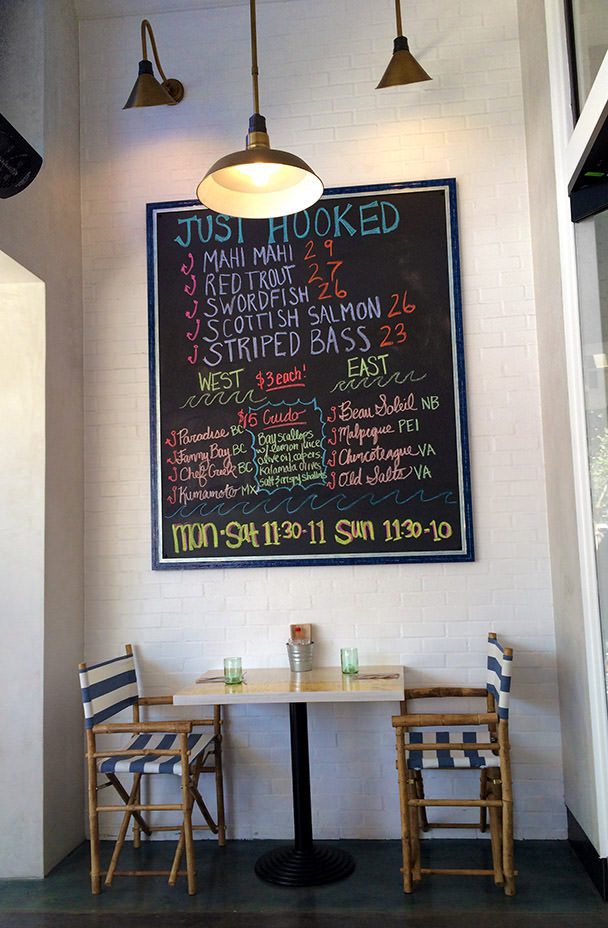 JUST HOOKED
MAHI MAHI 29
RED TROUT 27
SWORDFISH 26
SCOTTISH SALMON 26
STRIPED BASS 23
WEST $3 each! EAST
Paradise BC
Fanny Bay BC
Chef Creek BC
Kumamoto MX
$15 Crudo
Bay scallops
w/ lemon juice
olive oil, capers
kalamata olives
salt & crispy shallots
Beau Soleil NB
Malpeque PEI
Chincoteague VA
Old Salts VA
mon-Sat 11:30-11 Sun 11:30-10